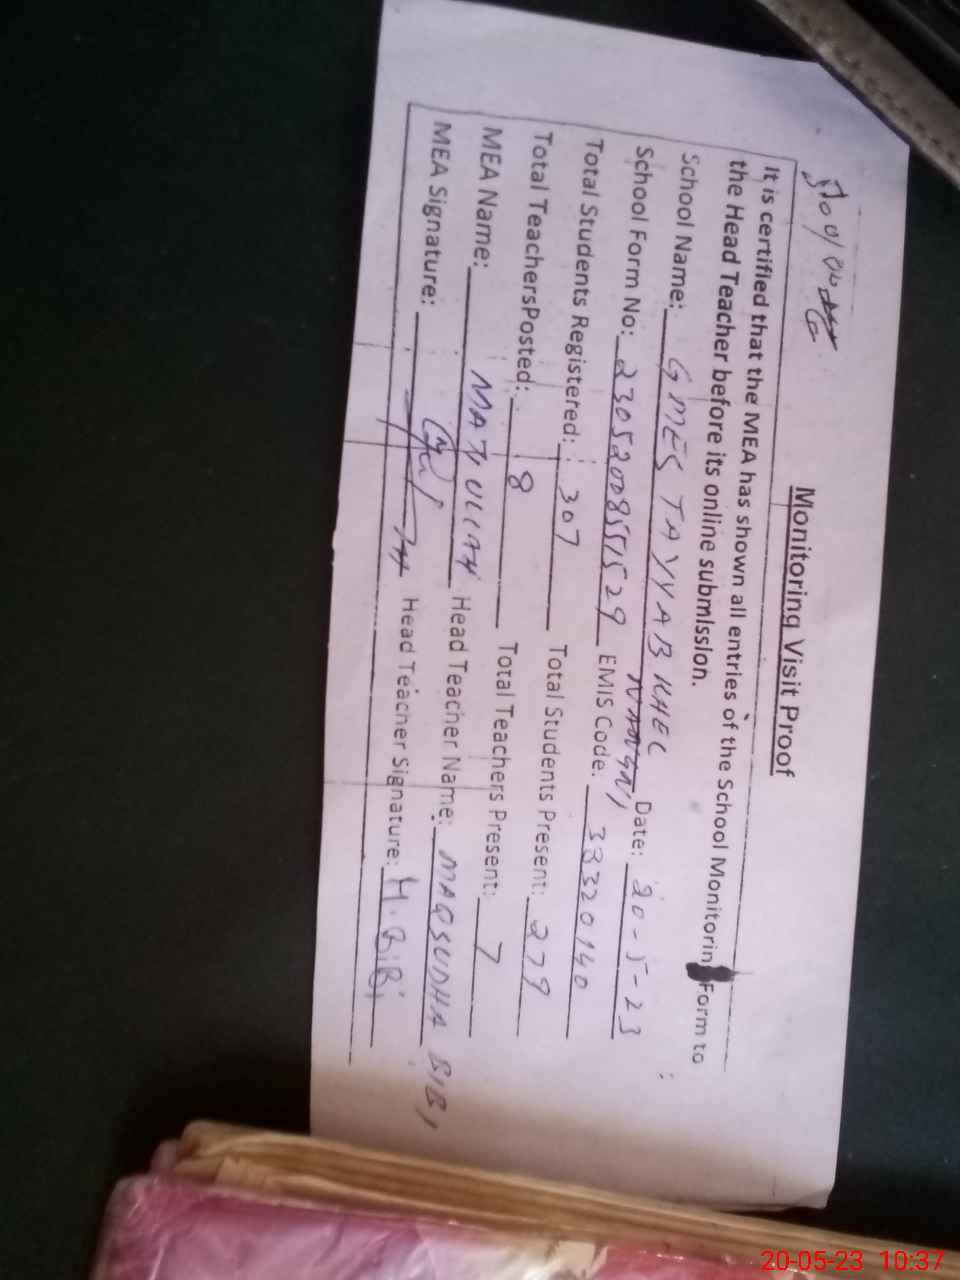 Monitoring Visit Proof
It is certified that the MEA has shown all entries of the School Monitorin Form to
the Head Teacher before its online submission.
School Name: GMES TAYYAB KHEL Date: 20-5-23
School Form No: 23052008551529 EMIS Code: 38320140
Total Students Registered: 307 Total Students Present: 279
Total TeachersPosted: 8 Total Teachers Present: 7
MEA Name: MATIULLAH Head Teacher Name: MAQSUDHA BIBI
MEA Signature: Head Teacher Signature: M.BiBi
20-05-23 10:37